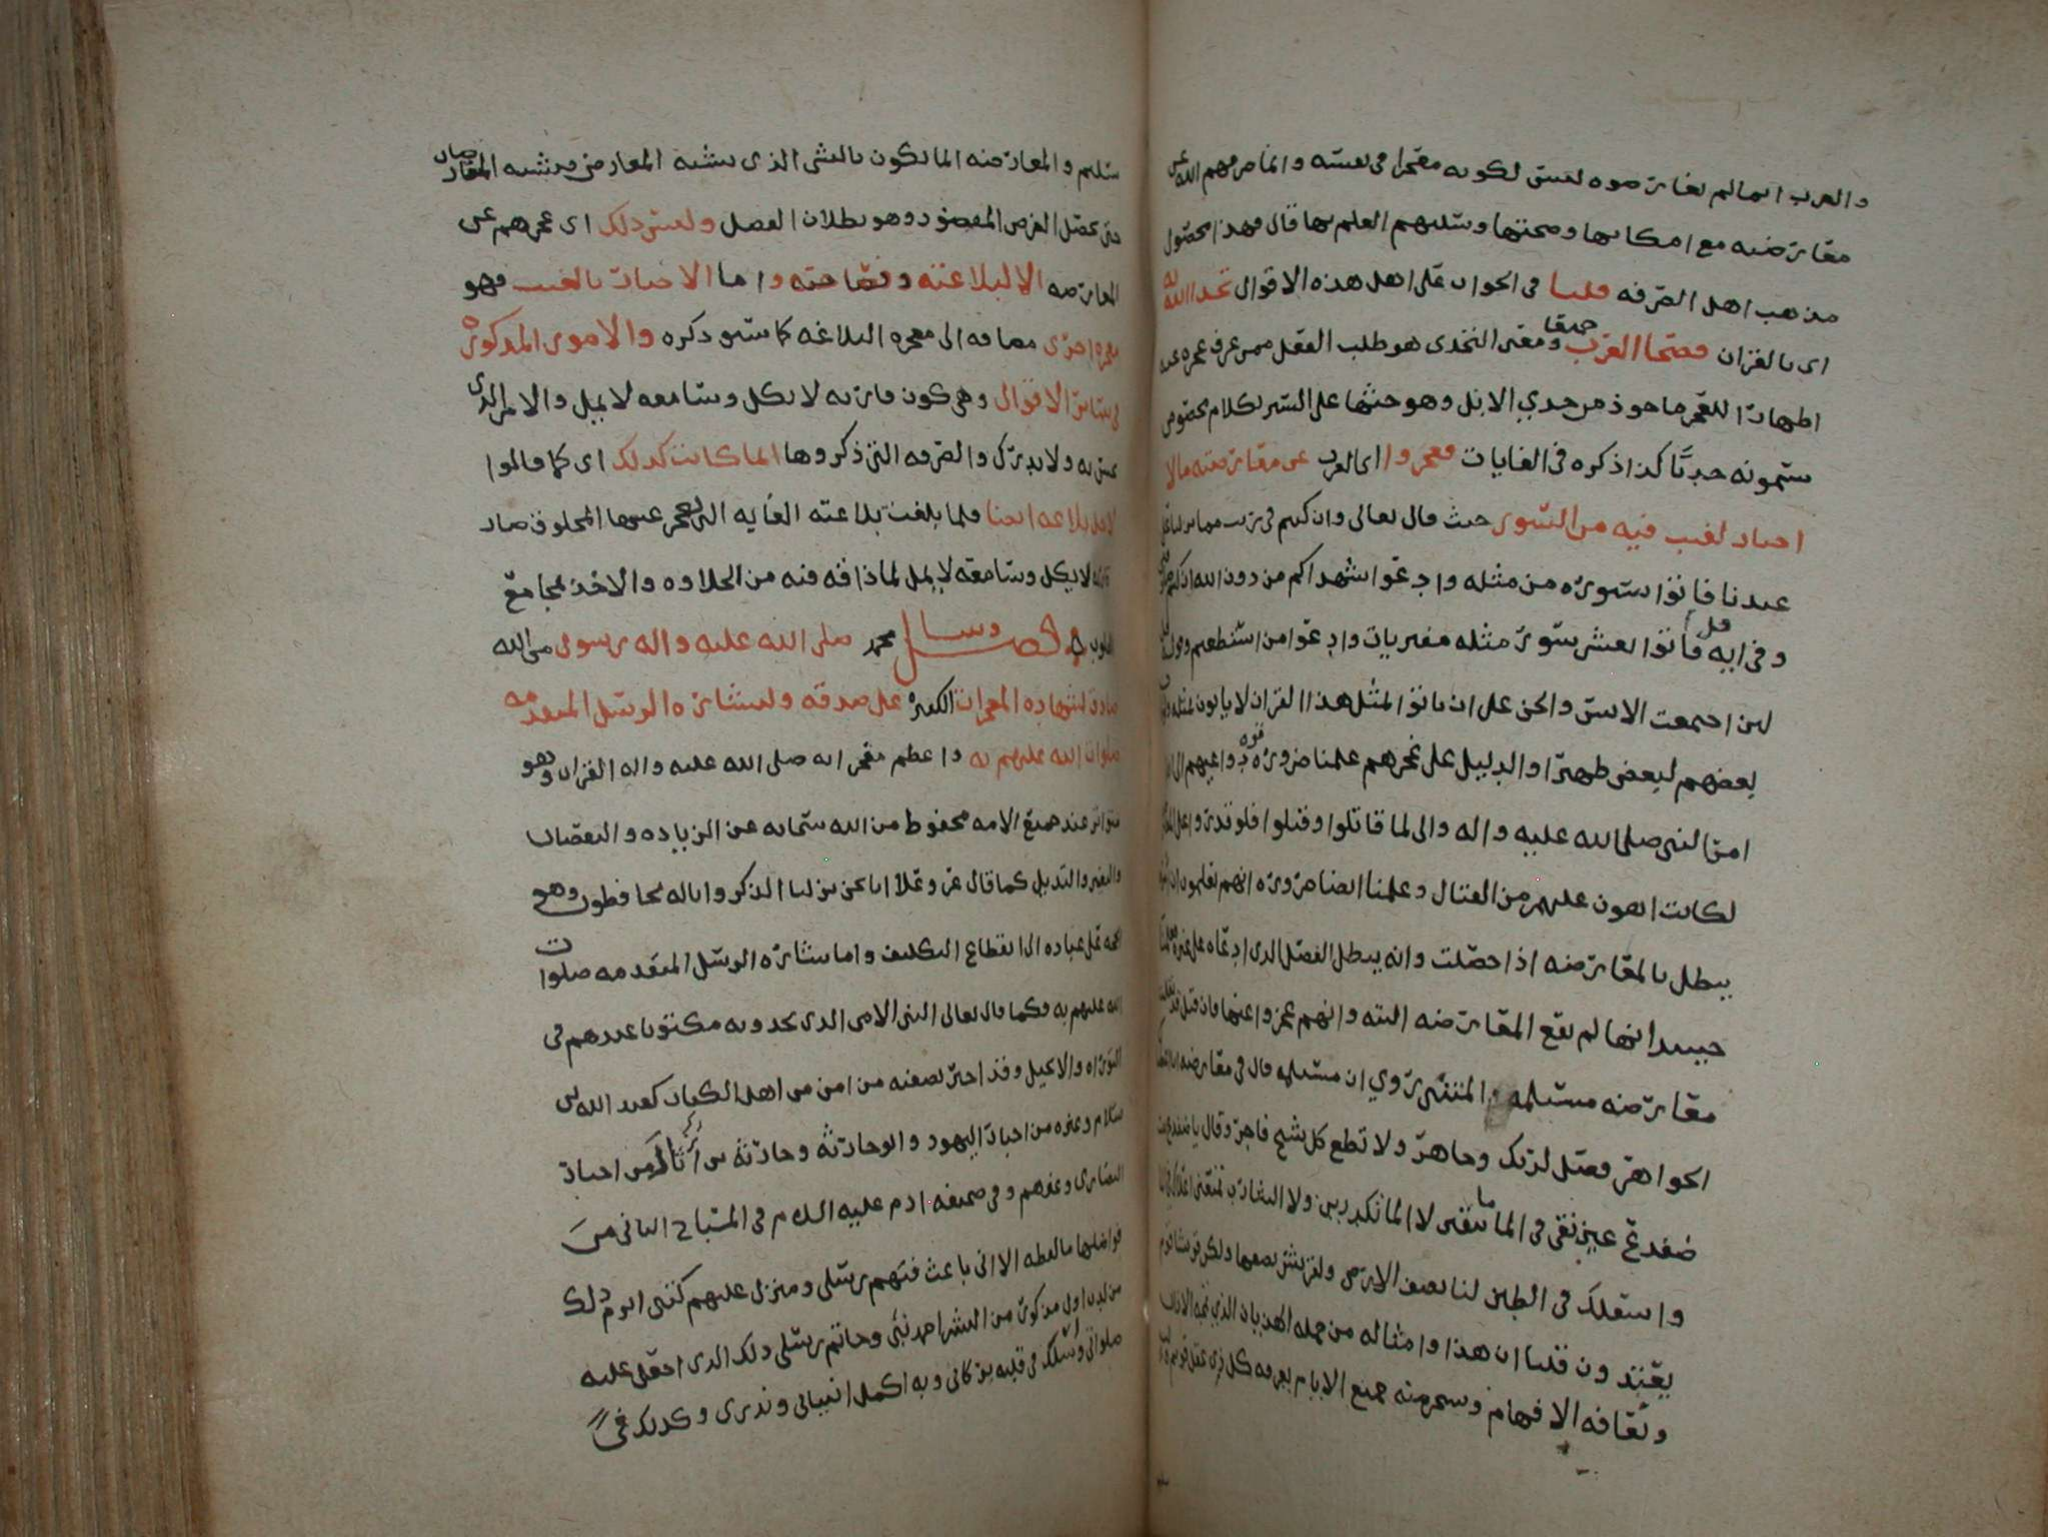 والعرب انما لم يعارضوه ليس لكونه معجزا في نفسه وانما صرفهم الله عن
معارضته مع امكانها وصحتها وسلبهم العلم بها قال فهذا محصول
مذهب اهل الصرفه قلنا في الجواب على اهل هذه الاقوال تحدا الله به
اي بالقران فصحا العرب جميعا ومعنى التحدي هو طلب الفعل ممن عرف عجزه عنه
اظهارا للعجز ماخوذ من حدي الابل وهو حثها على السير بكلام مخصوص
يسمونه حديا كذا ذكره في الغايات فعجزوا اي العرب عن معارضته مالا
اخبار لغيب فيه من السور حيث قال تعالى وان كنتم في ريب مما نزلنا على
عبدنا فاتوا بسورة من مثله وادعوا شهداكم من دون الله ان كنتم
وفي ايه قل فاتوا بعشر سور مثله مفتريات وادعوا من استطعتم
لين اجتمعت الانس والجن على ان ياتوا بمثل هذا القران لا ياتون بمثله
بعضهم لبعض ظهيرا والدليل على عجزهم علمنا ضرورة قوة دواعيهم الى
امر النبي صلى الله عليه واله والى لما قاتلوا وقتلوا فلو قدروا على
لكانت اهون عليهم من القتال وعلمنا ايضا ضرورة انهم يعلمون ان
يبطل بالمعارضه اذا حصلت وانه يبطل الفضل الذي ادعاه على غيره
حينيذ انها لم تقع المعارضه البته وانهم عجزوا عنها فان قيل قد
معارضه مسيلمه المتنبي روي ان مسيلمه قال في معارضه انا اعطيناك
الجواهر فصل لربك وجاهر ولا تطع كل شيخ فاجر وقال يا ضفدع بنت
ضفدع عين نقي في الما ما تنقين لا الما تكدرين ولا الشارب تمنعين
واسفلك في الطين لنا نصف الارض ولقريش نصفها ولكن قريشا قوم
يعتدون قلنا ان هذا وامثاله من جمله الهذيان الذي تمجه الاذان
وتعافه الافهام ويسخر منه جميع الانام يعرفه كل ذي عقل قويم
سليم والمعارضه انما تكون بالشي الذي يشبه المعارض ويشبه المعارضات
حتى يحصل الغرض المقصود وهو بطلان الفضل وليس ذلك اي عجزهم عن
المعارضه الا لبلاغته وفصاحته واما الاخبار بالغيب فهو
معجزه اخرى مضافه الى معجزه البلاغه كما سبق ذكره والامور المذكورة
في سائر الاقوال وهي كون قاريه لا يكل وسامعه لا يمل والامر الذي
يحس به ولا يدرك والصرفه التي ذكروها انما كانت كذلك اي كما قالوا
لاجل بلاغه ايضا فلما بلغت بلاغته الغايه التي يعجز عنها المخلوق صار
قاريه لا يكل وسامعه لا يمل لما ذاقه فيه من الحلاوه والاخذ بمجامع
القلوب فصل ونبينا محمد صلى الله عليه واله رسول من الله
صادق لشهاده المعجزات الكثيرة على صدقه ولبشارة الرسل المتقدمه
صلوات الله عليهم به واعظم معجزاته صلى الله عليه واله القران وهو
متواتر عند جميع الامه محفوظ من الله سبحانه عن الزياده والنقصان
والتغيير والتبديل كما قال عز وعلا انا نحن نزلنا الذكر وانا له لحافظون وهو
حجه على عباده الى انقطاع التكليف واما بشارة الرسل المتقدمه صلوات
الله عليهم به فكما قال تعالى النبي الامي الذي يجدونه مكتوبا عندهم في
التوراه والانجيل وقد اخبر بصفته من امن من اهل الكتاب كعبد الله بن
سلام وغيره من احبار اليهود وابو حارثه وحارثه بن اثال من احبار
النصارى وغيرهم وفي صحيفه ادم عليه السلام في المصباح الثاني من
فواضلها ما لفظه الا اني باعث فيهم رسلي ومنزل عليهم كتبي ابرم ذلك
من لدن اول مذكور من البشر احمد نبي وخاتم رسلي ذلك الذي اجعل عليه
صلواتي واسلك في قلبه بركاتي وبه اكمل انبيائي ونذري وكذلك في